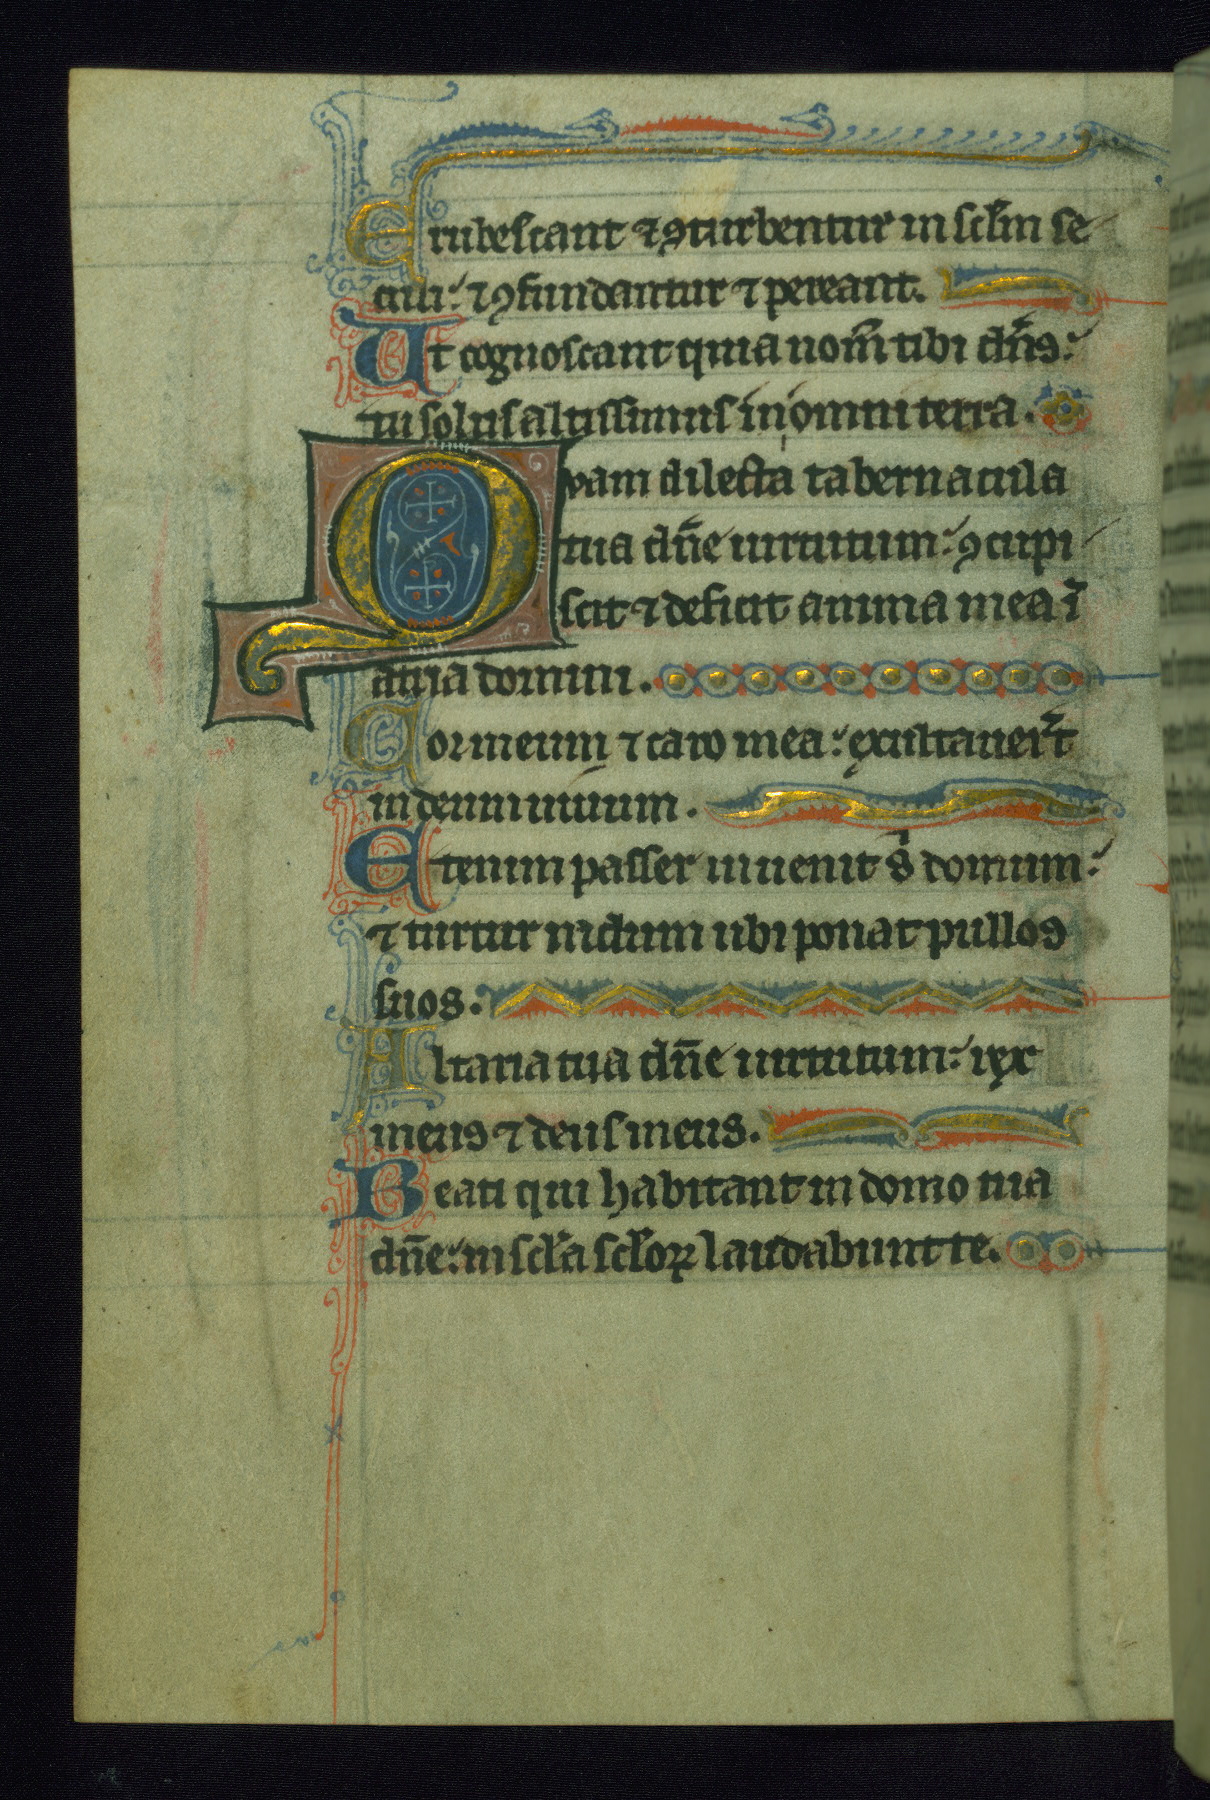 Erubescant ⁊ ꝯturbentur in scl̃m se
culi: ⁊ ꝯfundantur ⁊ pereant.
Ut cognoscant quia nom̃ tibi dñs:
tu solus altissimus in omni terra.
Quam dilecta tabernacula
tua dñe uirtutum: ꝯcupi
scit ⁊ deficit anima mea ĩ
atria domini.
Cor meum ⁊ caro mea: exultauer̃t
in deum uiuum.
Etenim passer inuenit s̓ domum:
⁊ turtur nidum ubi ponat pullos
suos.
Altaria tua dñe uirtutum: rex
meus ⁊ deus meus.
Beati qui habitant in domo tua
dñe: in scl̃a scl̃oꝝ laudabunt te.